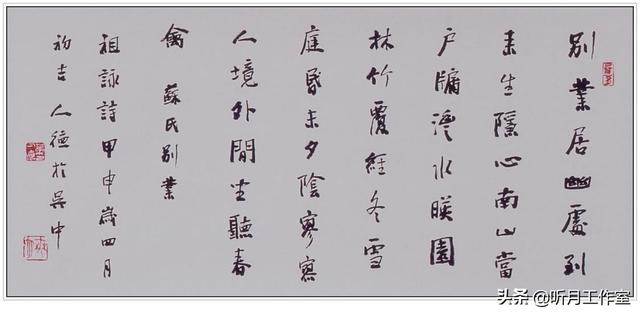 别業居幽處到
来生隱心南山當
户牖澧水暎園
林竹覆經冬雪
庭昏未夕陰寥寥
人境外閒坐聽春
禽 蘇氏别業
祖詠詩甲申歲四月
初吉人德於吳中
头条 @听月工作室